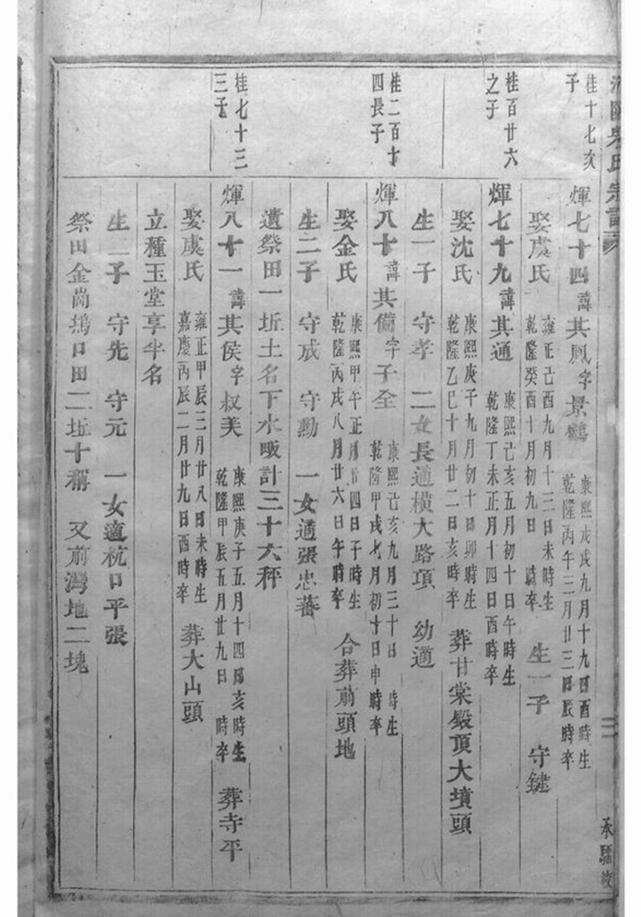 氏宗譜
承驥校
桂十七次子
輝七十四 諱其鳳字景鶴 康熙戊戌九月十九酉時生 乾隆丙午三月廿三日辰時卒
娶虞氏 雍正己酉九月十三日未時生 乾隆癸酉十月初九日 時卒 生一子 守鍵
桂百廿六之子
輝七十九 諱其通 康熙己亥五月初十日午時生 乾隆丁未正月十四日酉時卒
娶沈氏 康熙庚子九月初十日卯時生 乾隆乙巳十月廿二日亥時卒 葬甘棠殿頂大墳頭
生一子 守孝 二女長適橫大路項 幼適
桂二百十四長子
輝八十 諱其備字子全 康熙己亥九月三十日 時生 乾隆甲戌七月初十日申時卒
娶金氏 康熙甲午正月廿四日子時生 乾隆丙戌八月廿六日午時卒 合葬前頭地
生二子 守成 守勳 一女適張忠蕃
遺祭田一坵土名下水畈計三十六秤
桂七十三三子
輝八十一 諱其侯字叔美 康熙庚子五月十四日亥時生 乾隆甲辰五月廿九日 時卒 葬寺平
娶虞氏 雍正甲辰三月廿八日未時生 嘉慶丙辰二月廿九日酉時卒 葬大山頭
立種玉堂享半名
生二子 守先 守元 一女適杭口平張
祭田金崗塢口田二坵十稱 又前灣地二塊